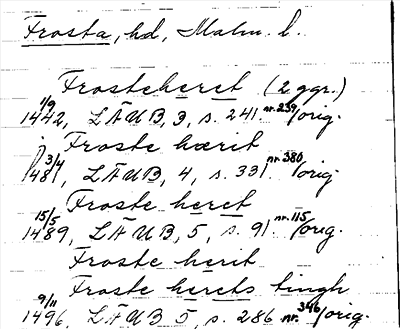 Frosta, hd, Malm. l.
Frosteheret (2 ggr.)
1/9 1442, LÄUB, 3, s. 241. nr. 239 /orig.
Froste hærit
3/4 1481, LÄUB, 4, s. 331. nr. 380 /orig.
Froste heret
15/5 1489, LÄUB, 5, s. 91 nr. 115 /orig.
Froste herit
Froste herets tingh
9/11 1496, LÄUB 5, s. 286 nr. 346 /orig.